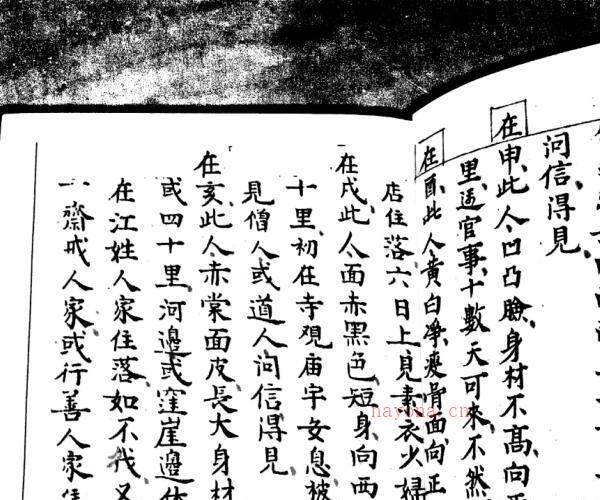 问信得見
在申此人凹凸臉身材不高向
里适官事十數天可來不然
在酉此人黄白净瘦骨面向正
店住落六日上見素衣少婦
在戌此人面赤黑色短身向西
十里初在寺观庙宇安息被
見僧人或道人问信得見
在亥此人赤棠面皮長大身材
或四十里河邊或窪崖邊住
在江姓人家住落如不我又
一齋戒人家或行善人家住
nayona.cn